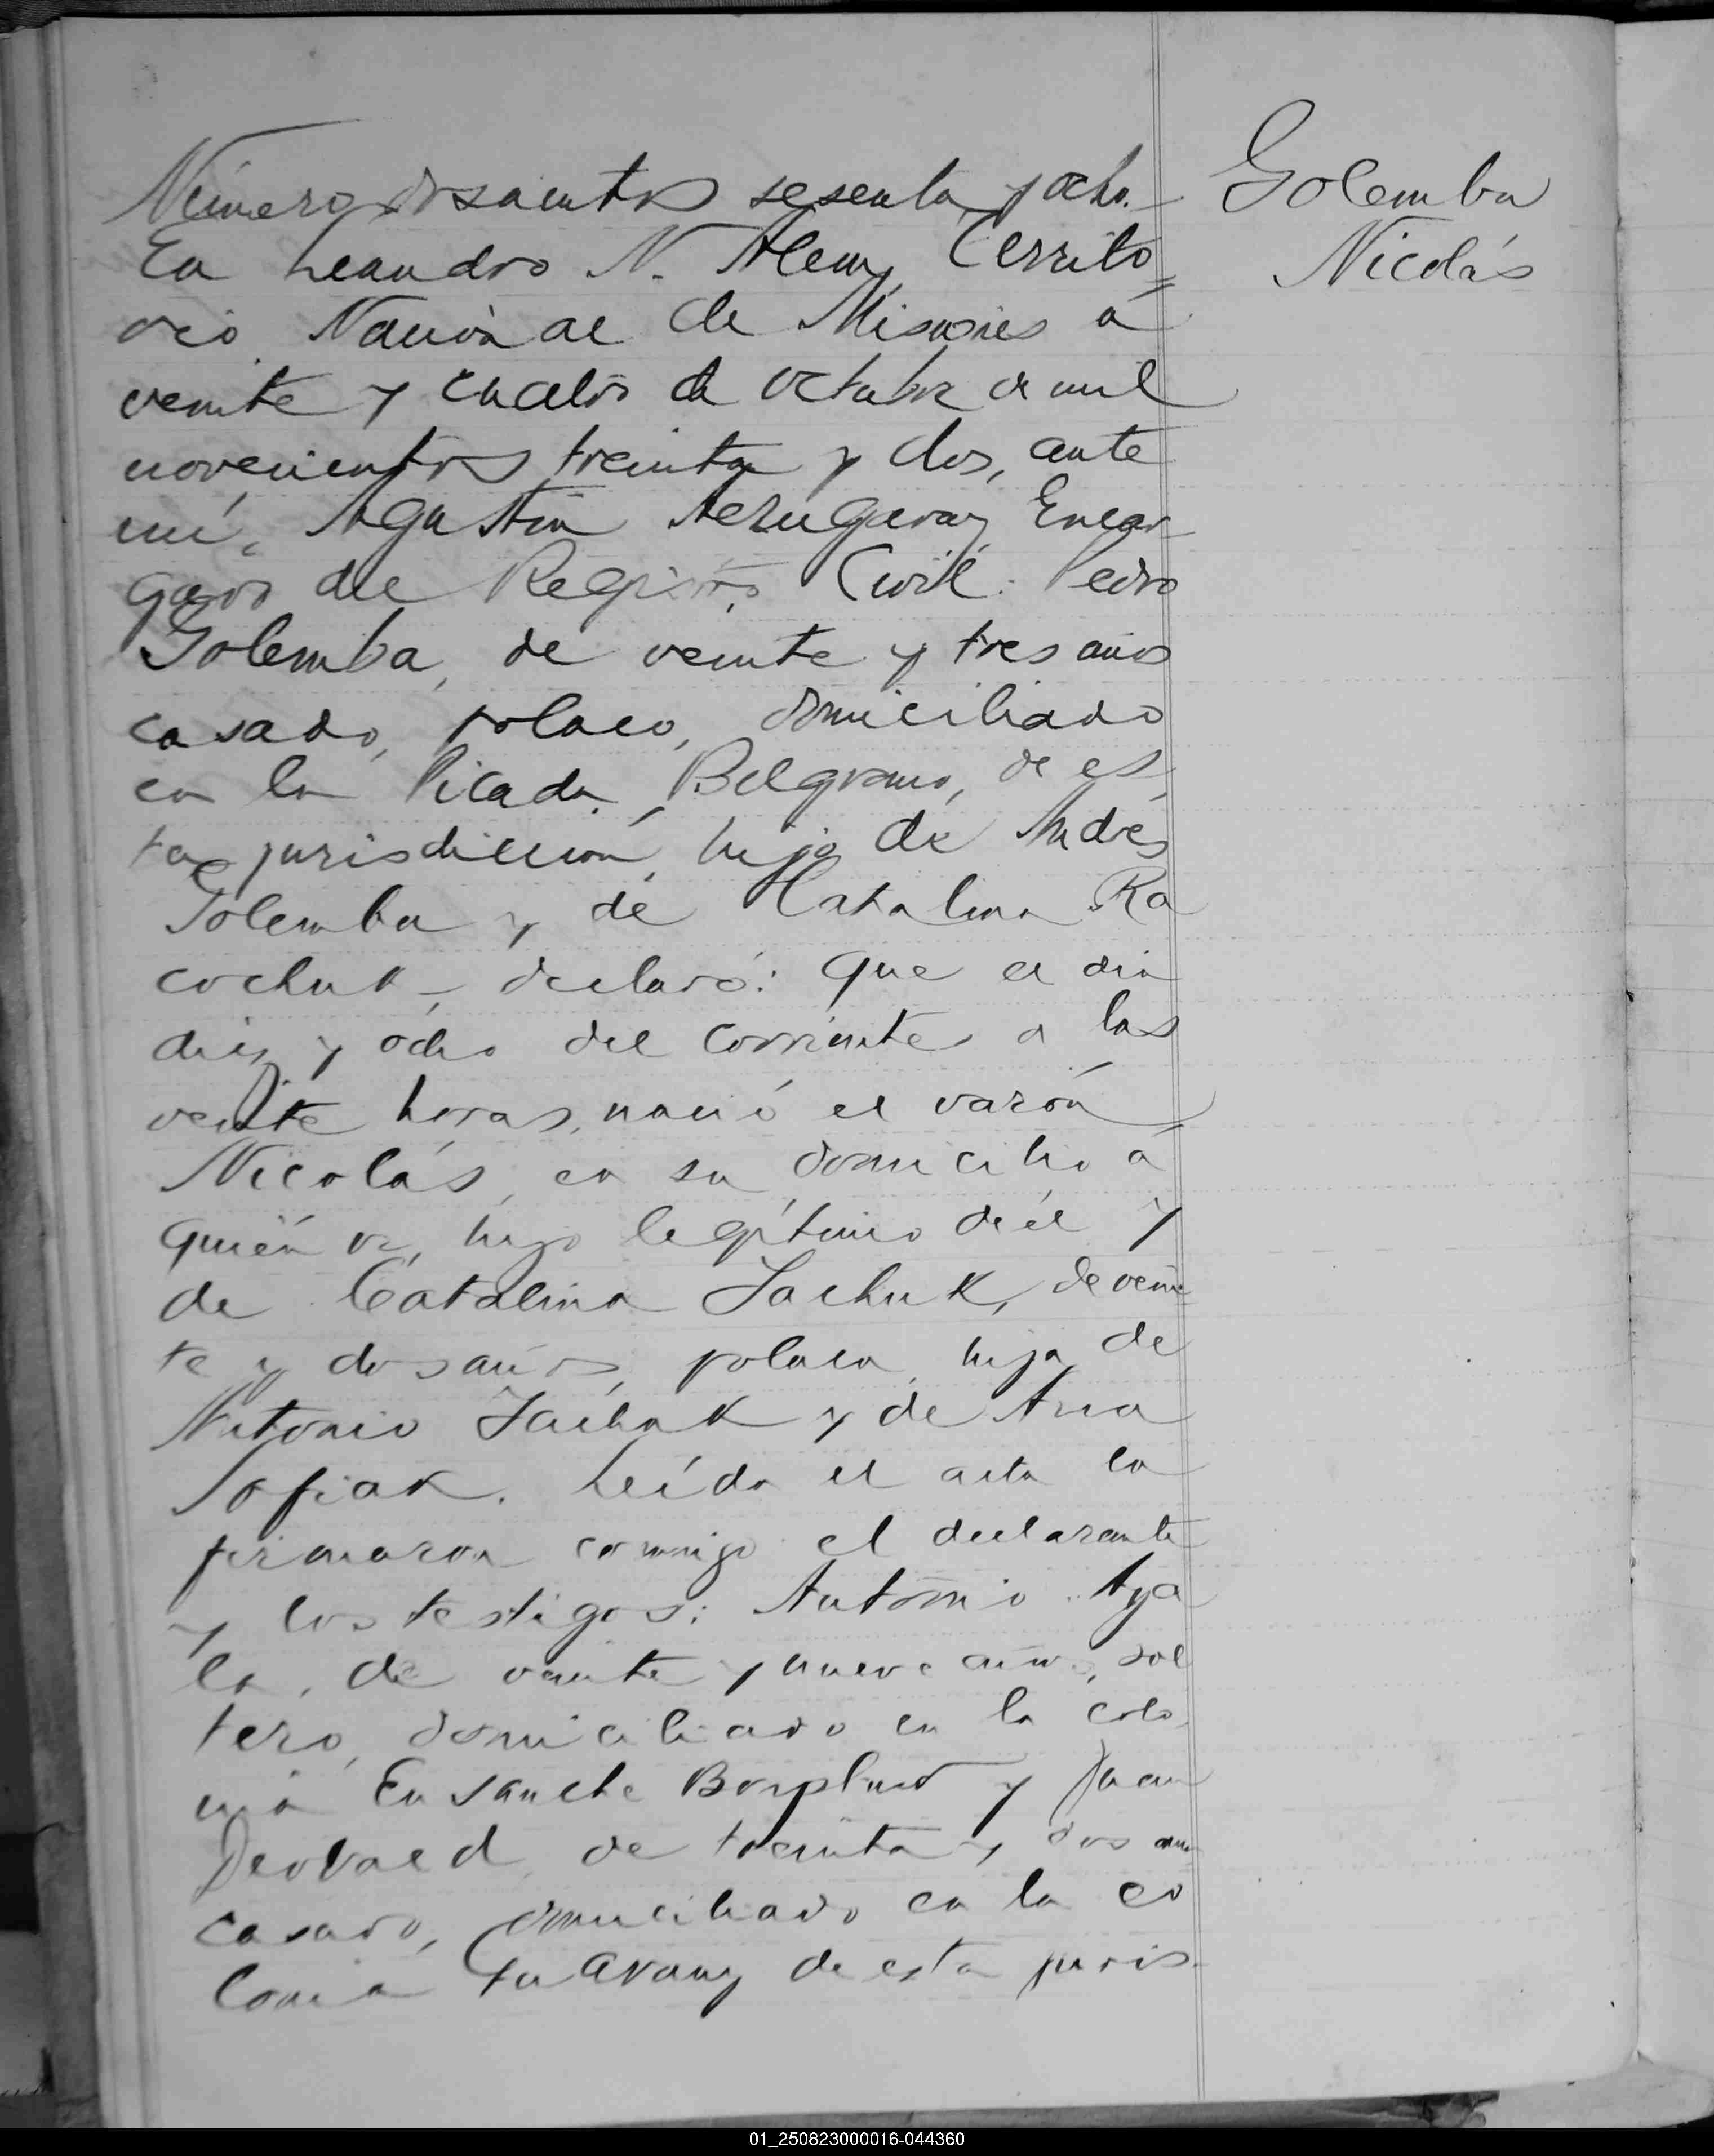 Número doscientos sesenta y ocho.-
En Leandro N. Alem, Territo=
rio Nacional de Misiones á
veinte y cuatro de octubre de mil
novecientos treinta y dos, ante
mí, Agustín Aezugaray, Encar-
gado del Registro Civil: Pedro
Golemba, de veinte y tres años
casado, polaco, domiciliado
en la Picada Belgrano, de es
ta jurisdicción, hijo de Andrés
Golemba y de Catalina Ra
cochuk, declaró: Que el dia
diez y ocho del corriente a las
veinte horas, nació el varón
Nicolás, en su domicilio á
quién vi, hijo legítimo de él y
de Catalina Jachuk, de vein=
te y dos años, polaca, hija de
Antonio Jachuk y de Ana
Sofiak. Leída el acta la
firmaron conmigo el declarante
y los testigos: Antonio Aya
la, de veinte y nueve años, sol
tero, domiciliado en la colo
nia Ensanche Bonpland y Juan
de treinta y dos años
casado, domiciliado en la co
lonia Guarany de esta juris-
Golemba
Nicolás
01_250823000016-044360